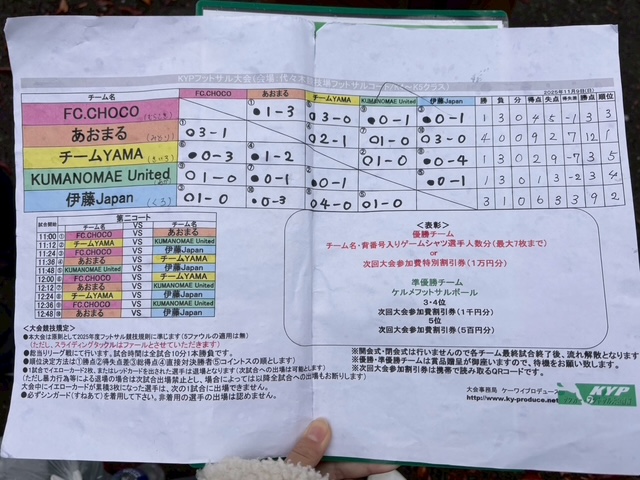 KYPフットサル大会(会場:代々木競技場フットサルコート)
2025年11月9日(日)
チーム名 FC.CHOCO あおまる チームYAMA KUMANOMAE United 伊藤Japan 勝 負 分 得点 失点 得失差 勝点 順位
FC.CHOCO ①●1-3 ⑥○3-0 ●0-1 ③●0-1 1 3 0 4 5 -1 3 3
あおまる ①○3-1 ④○2-1 ⑦○1-0 ⑩○3-0 4 0 0 9 2 7 12 1
チームYAMA ⑥●0-3 ④●1-2 ②○1-0 ●0-4 1 3 0 2 9 -7 3 5
KUMANOMAE United ○1-0 ⑦●0-1 ②●0-1 ⑤●0-1 1 3 0 1 3 -2 3 4
伊藤Japan ③○1-0 ⑩●0-3 ○4-0 ⑤○1-0 3 1 0 6 3 3 9 2
試合開始 第二コート
チーム名 VS チーム名
11:00 ① FC.CHOCO VS あおまる
11:12 ② チームYAMA VS KUMANOMAE United
11:24 ③ FC.CHOCO VS 伊藤Japan
11:36 ④ あおまる VS チームYAMA
11:48 ⑤ KUMANOMAE United VS 伊藤Japan
12:00 ⑥ FC.CHOCO VS チームYAMA
12:12 ⑦ あおまる VS KUMANOMAE United
12:24 ⑧ チームYAMA VS 伊藤Japan
12:36 ⑨ FC.CHOCO VS KUMANOMAE United
12:48 ⑩ あおまる VS 伊藤Japan
<表彰>
優勝チーム
チーム名・背番号入りゲームシャツ選手人数分(最大7枚まで)
or
次回大会参加費特別割引券(1万円分)
準優勝チーム
ケルメフットサルボール
3・4位
次回大会参加費割引券(1千円分)
5位
次回大会参加費割引券(5百円分)
<大会競技規定>
●本大会は原則として2025年度フットサル競技規則に準じます(5ファウルの適用は無)
(ただし、スライディングタックルはファールとさせていただきます。)
●総当りリーグ戦にて行います。試合時間は全試合10分1本勝負です。
●順位決定方法は①勝点②得失点差③総得点④直接対決勝者⑤コイントスの順とします)
●1試合でイエローカード2枚、またはレッドカードを出された選手は退場となります(次試合への出場は可能とします)
(ただし暴力行為等による退場の場合は次試合出場禁止とし、場合によっては以降全試合への出場もお断りします)
大会中にイエローカードが累積3枚になった選手は、次の1試合に出場できません。
●必ずシンガード(すねあて)を着用して下さい、非着用の選手の出場は認めません。
※開会式・閉会式は行いませんので各チーム最終試合終了後、流れ解散となります
※優勝・準優勝チームは賞品贈呈が御座いますので、待機をお願い致します。
※次回大会参加割引券は携帯で読み取るQRコードです。
大会事務局 ケーワイプロデュース
http://www.ky-produce.net
KYP